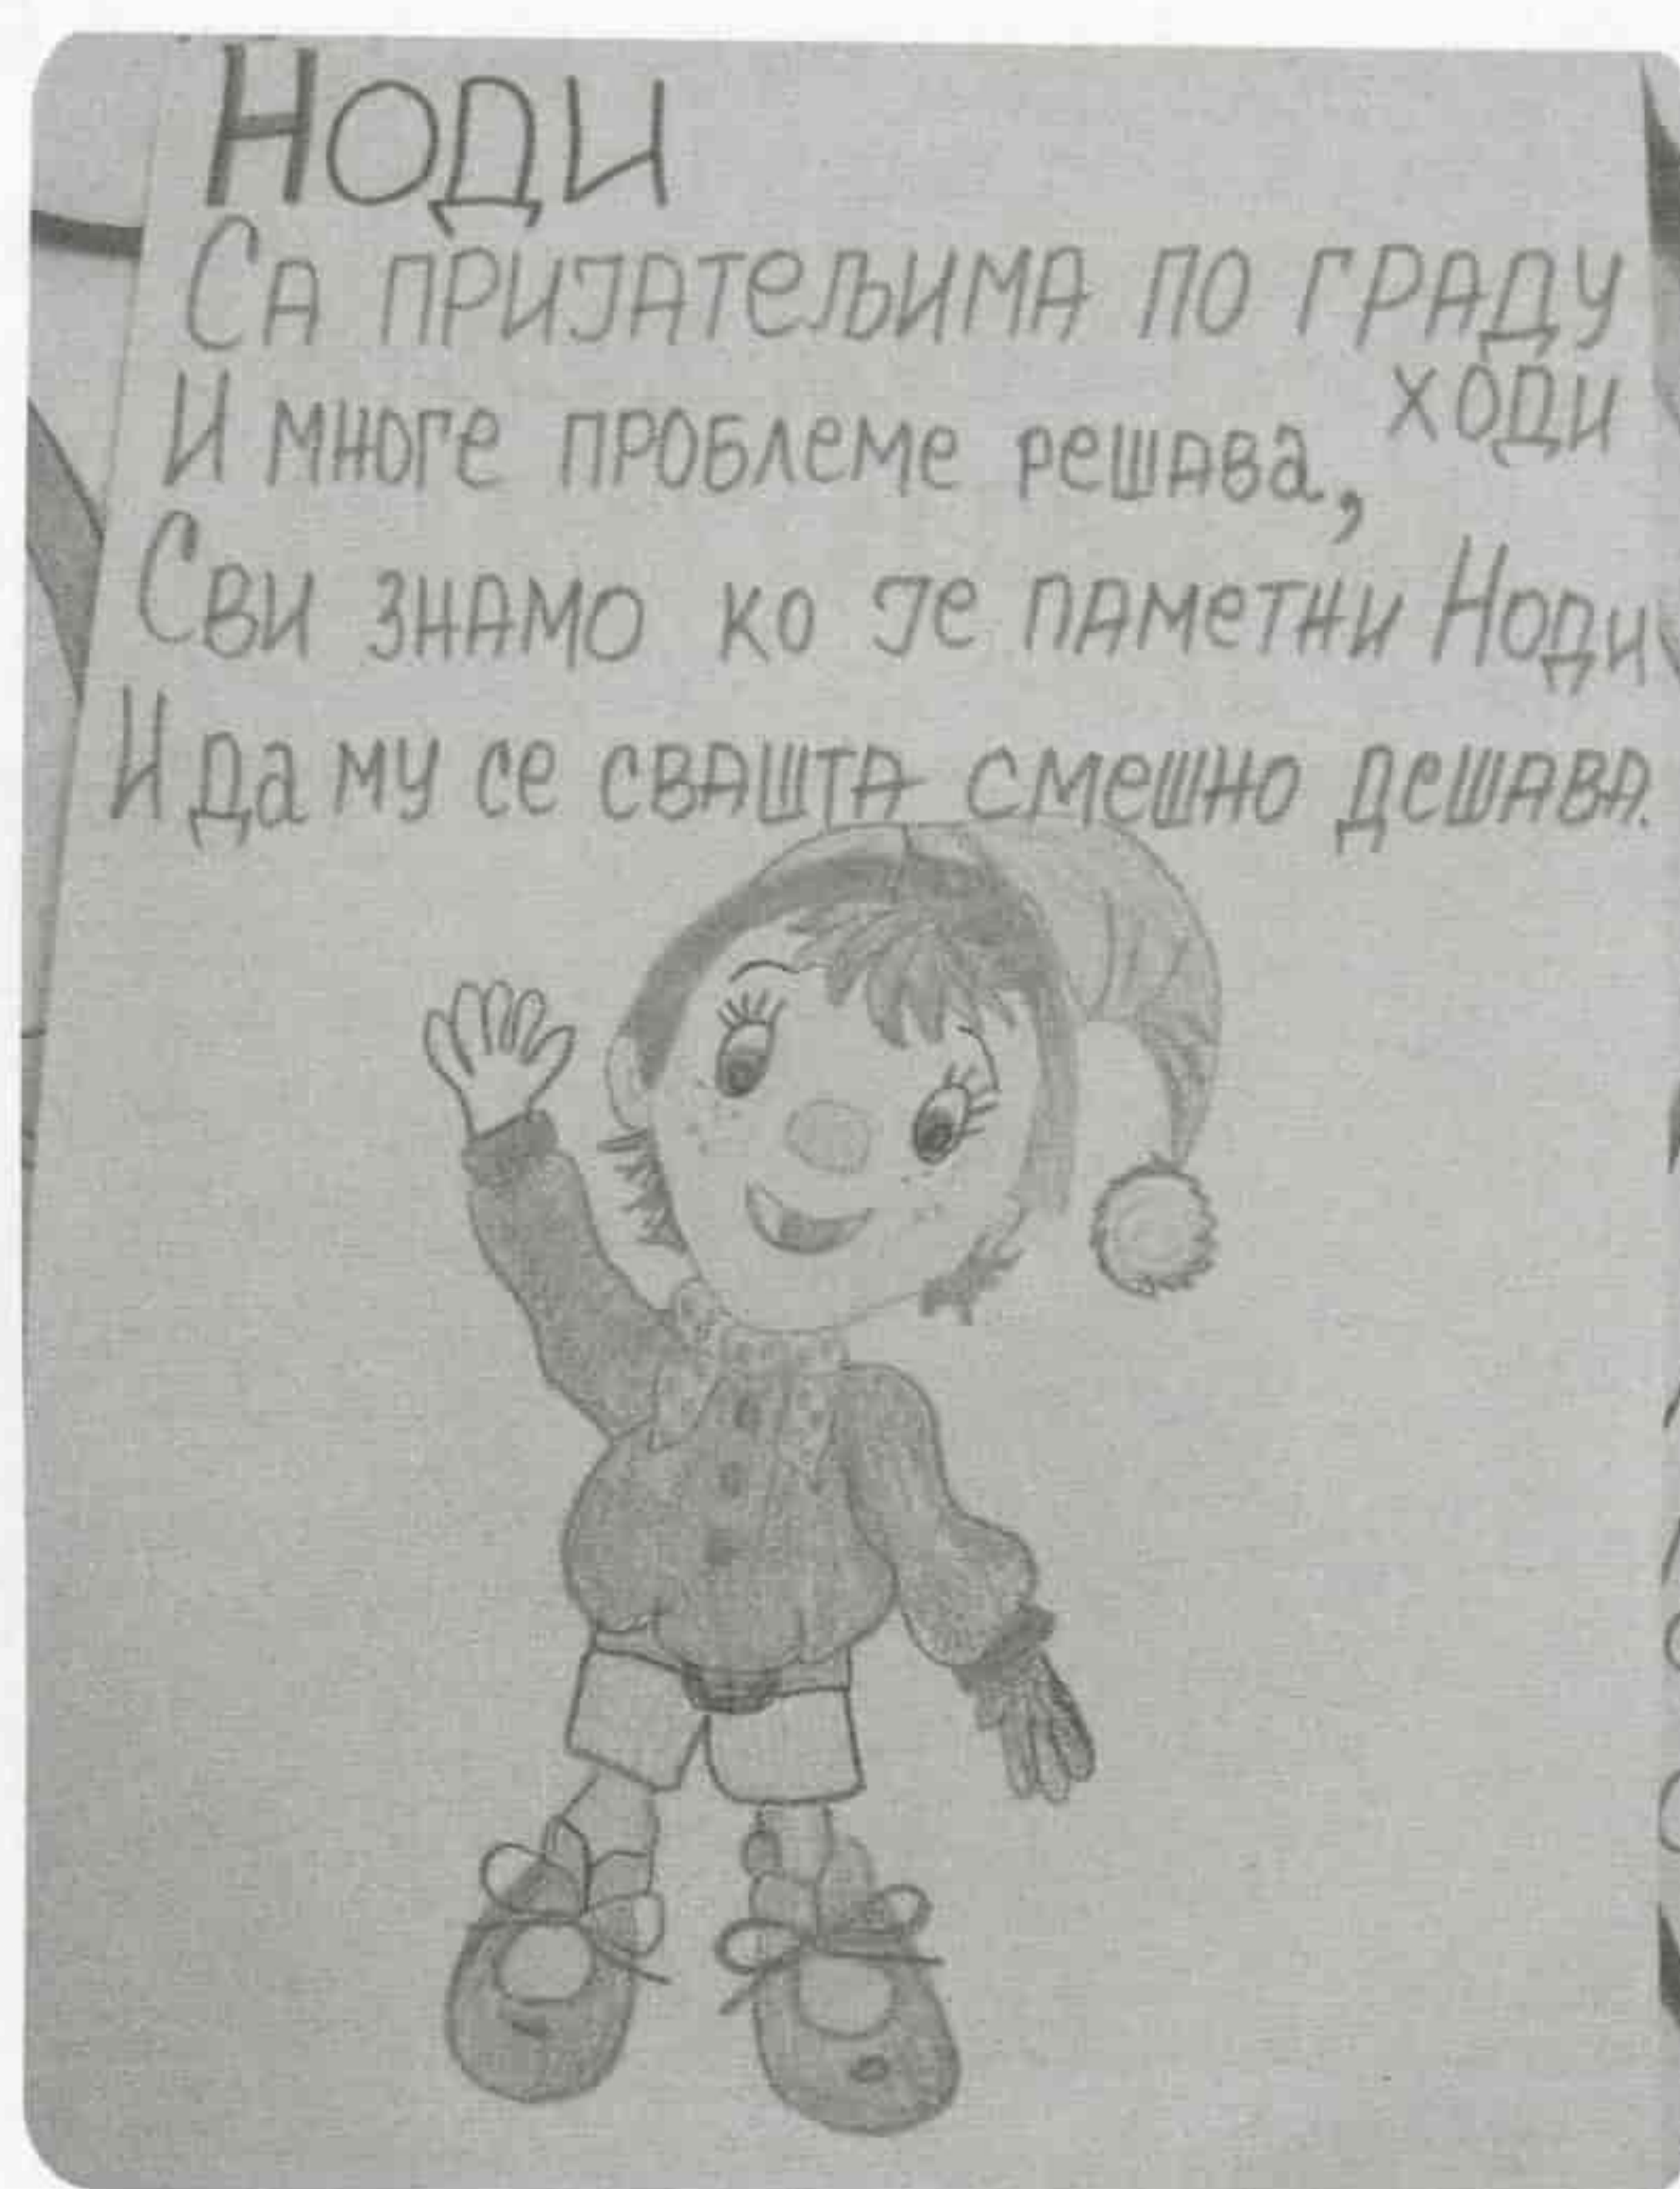 Ноди
Са пријатељима по граду
ходи
И многе проблеме решава,
Сви знамо ко је паметни Ноди
И да му се свашта смешно дешава.